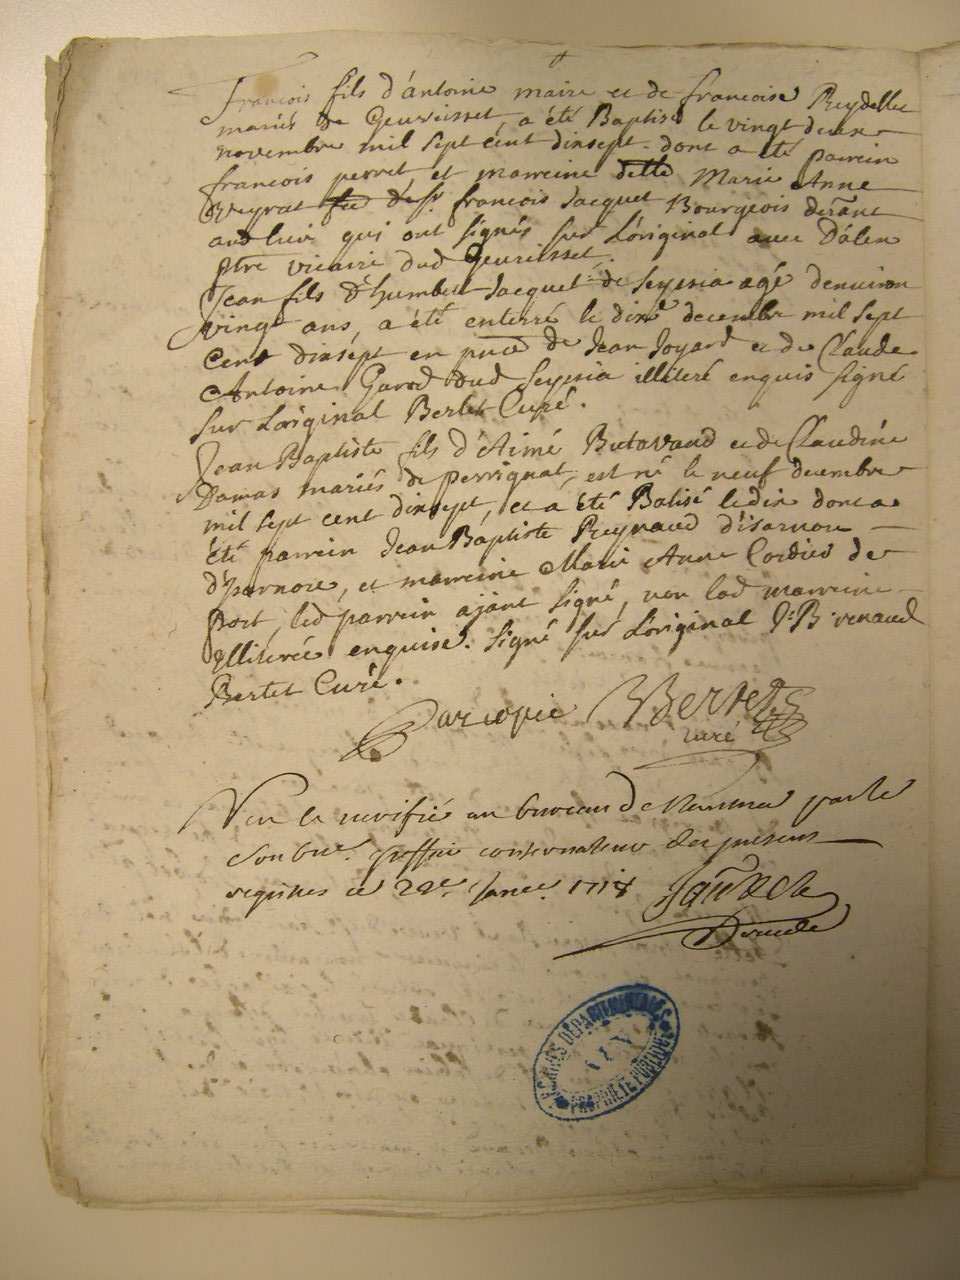 françois fils d'Antoine maire et de françoise Reydellet
mariés de Geurisset, a été Baptisé le vingt deux
novembre mil sept cent dixsept. dont a été parrein
françois perret, et marreine delle Marie Anne
Veyrat françois Jacquet Bourgeois
aud lieu qui ont signés sur L'original avec
ptre vicaire dud Geurissset.
Jean fils d'humbert Jacquet de Seyssia agé denviron
vingt ans, a été enterré le dix decembr mil sept
Cent dixsept en pnce de Jean Joyard et de Claude
Antoine dud Seyssia illiteré enquis signé
sur Loriginal Bertet Curé.
Jean Baptiste fils d'Aimé Butavand et de Claudine
Damas mariés de perrignat, est né le neuf decembre
mil sept cent dixsept, et a été Batisé ledix dont a
été parrein Jean Baptiste Reynaud
et marreine Marie Anne Cordier de
Port, led parrein ajant signé, non lad marreine
illiterée enquise. signé sur Loriginal J. B. renaud
Bertet Curé.
Par copie Bertet
curé
Veu le veriffié au bureau de Nantua par le
greffier conservateur des presens
registres ce 22e Janer. 1718
ARCHIVES DÉPARTEMENTALES
AIN
PROPRIÉTÉ PUBLIQUE